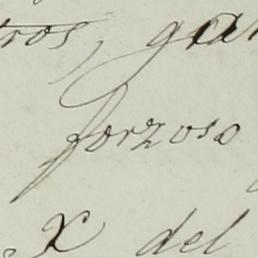 tros, gran
forzoso
X del